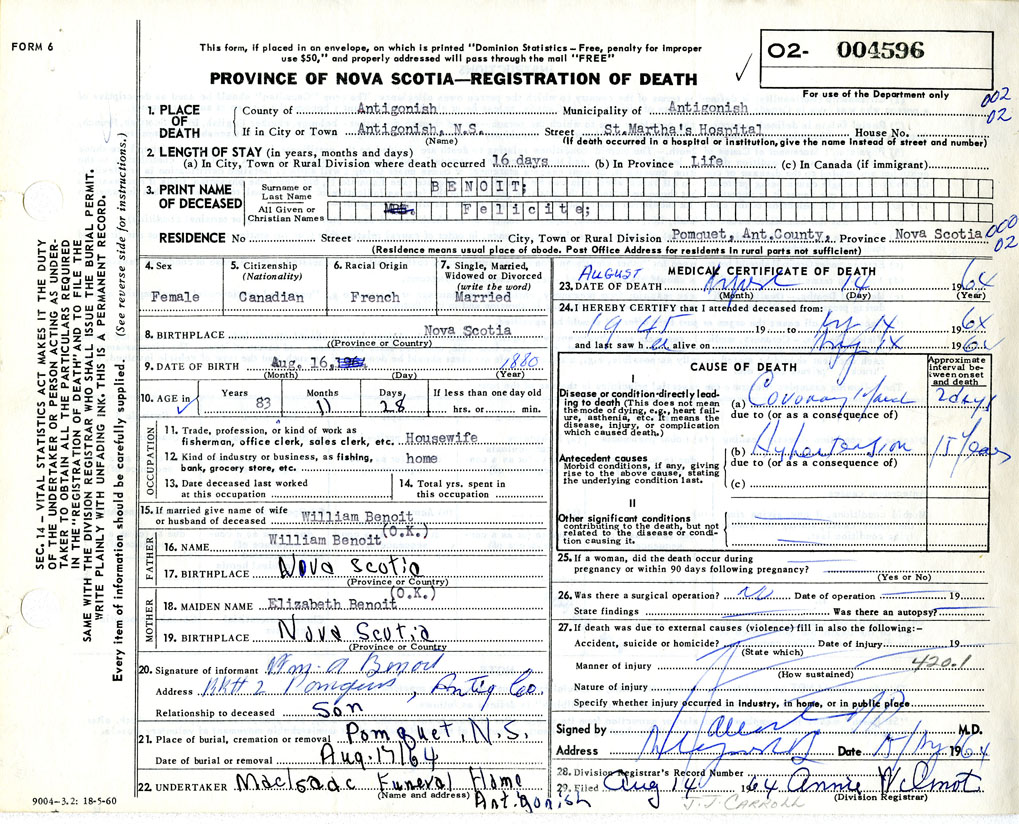 FORM 6
This form, if placed in an envelope, on which is printed "Dominion Statistics – Free, penalty for improper
use $50," and properly addressed will pass through the mail "FREE"
PROVINCE OF NOVA SCOTIA—REGISTRATION OF DEATH
✓
O2- 004596
For use of the Department only
002
02
1. PLACE OF DEATH
County of Antigonish Municipality of Antigonish
If in City or Town Antigonish, N.S. Street St.Martha's Hospital House No.
(Name) (If death occurred in a hospital or institution, give the name instead of street and number)
2. LENGTH OF STAY (in years, months and days)
(a) In City, Town or Rural Division where death occurred 16 days (b) In Province Life (c) In Canada (if immigrant)
3. PRINT NAME OF DECEASED
Surname or Last Name BENOIT;
All Given or Christian Names Mrs. Felicite;
RESIDENCE No Street City, Town or Rural Division Pomquet, Ant.County, Province Nova Scotia
000
02
(Residence means usual place of abode. Post Office Address for residents in rural parts not sufficient)
4. Sex
Female
5. Citizenship
(Nationality)
Canadian
6. Racial Origin
French
7. Single, Married,
Widowed or Divorced
(write the word)
Married
8. BIRTHPLACE Nova Scotia
(Province or Country)
9. DATE OF BIRTH Aug. 16, 1880
(Month) (Day) (Year)
10. AGE in ✓
Years 83
Months 11
Days 28
If less than one day old
hrs. or min.
OCCUPATION
11. Trade, profession, or kind of work as
fisherman, office clerk, sales clerk, etc. Housewife
12. Kind of industry or business, as fishing,
bank, grocery store, etc. home
13. Date deceased last worked
at this occupation
14. Total yrs. spent in
this occupation
15. If married give name of wife
or husband of deceased William Benoit
FATHER
16. NAME William Benoit (O.K.)
17. BIRTHPLACE Nova Scotia
(Province or Country)
MOTHER
18. MAIDEN NAME Elizabeth Benoit (O.K.)
19. BIRTHPLACE Nova Scotia
(Province or Country)
20. Signature of informant Wm. A Benoit
Address 2 Pomquet, Antig Co.
Relationship to deceased Son
21. Place of burial, cremation or removal Pomquet, N.S.
Date of burial or removal Aug. 17/64
22. UNDERTAKER MacIsaac Funeral Home
(Name and address) Antigonish
9004-3.2: 18-5-60
MEDICAL CERTIFICATE OF DEATH
AUGUST
23. DATE OF DEATH August 14 1964
(Month) (Day) (Year)
24. I HEREBY CERTIFY that I attended deceased from:
1945 19 to 14 196
and last saw her alive on 196
CAUSE OF DEATH
Approximate
interval be-
tween onset
and death
I
Disease or condition directly lead-
ing to death (This does not mean
the mode of dying, e.g., heart fail-
ure, asthenia, etc. It means the
disease, injury, or complication
which caused death.)
(a) Coronary 2 days
due to (or as a consequence of)
Antecedent causes
Morbid conditions, if any, giving
rise to the above cause, stating
the underlying condition last.
(b) Hypertension 15 years
due to (or as a consequence of)
(c)
II
Other significant conditions
contributing to the death, but not
related to the disease or condi-
tion causing it.
25. If a woman, did the death occur during
pregnancy or within 90 days following pregnancy?
(Yes or No)
26. Was there a surgical operation? No Date of operation 19
State findings Was there an autopsy?
27. If death was due to external causes (violence) fill in also the following:–
Accident, suicide or homicide? Date of injury 19
(State which)
Manner of injury 420.1
(How sustained)
Nature of injury
Specify whether injury occurred in industry, in home, or in public place
Signed by M.D.
Address Date 15/ 1964
28. Division Registrar's Record Number
29. Filed Aug 14 1964 Annie
(Division Registrar)
J.J. CARROLL
SEC. 14 – VITAL STATISTICS ACT MAKES IT THE DUTY
OF THE UNDERTAKER OR PERSON ACTING AS UNDER-
TAKER TO OBTAIN ALL THE PARTICULARS REQUIRED
IN THE "REGISTRATION OF DEATH" AND TO FILE THE
SAME WITH THE DIVISION REGISTRAR WHO SHALL ISSUE THE BURIAL PERMIT.
WRITE PLAINLY WITH UNFADING INK. THIS IS A PERMANENT RECORD.
Every item of information should be carefully supplied. (See reverse side for instructions.)